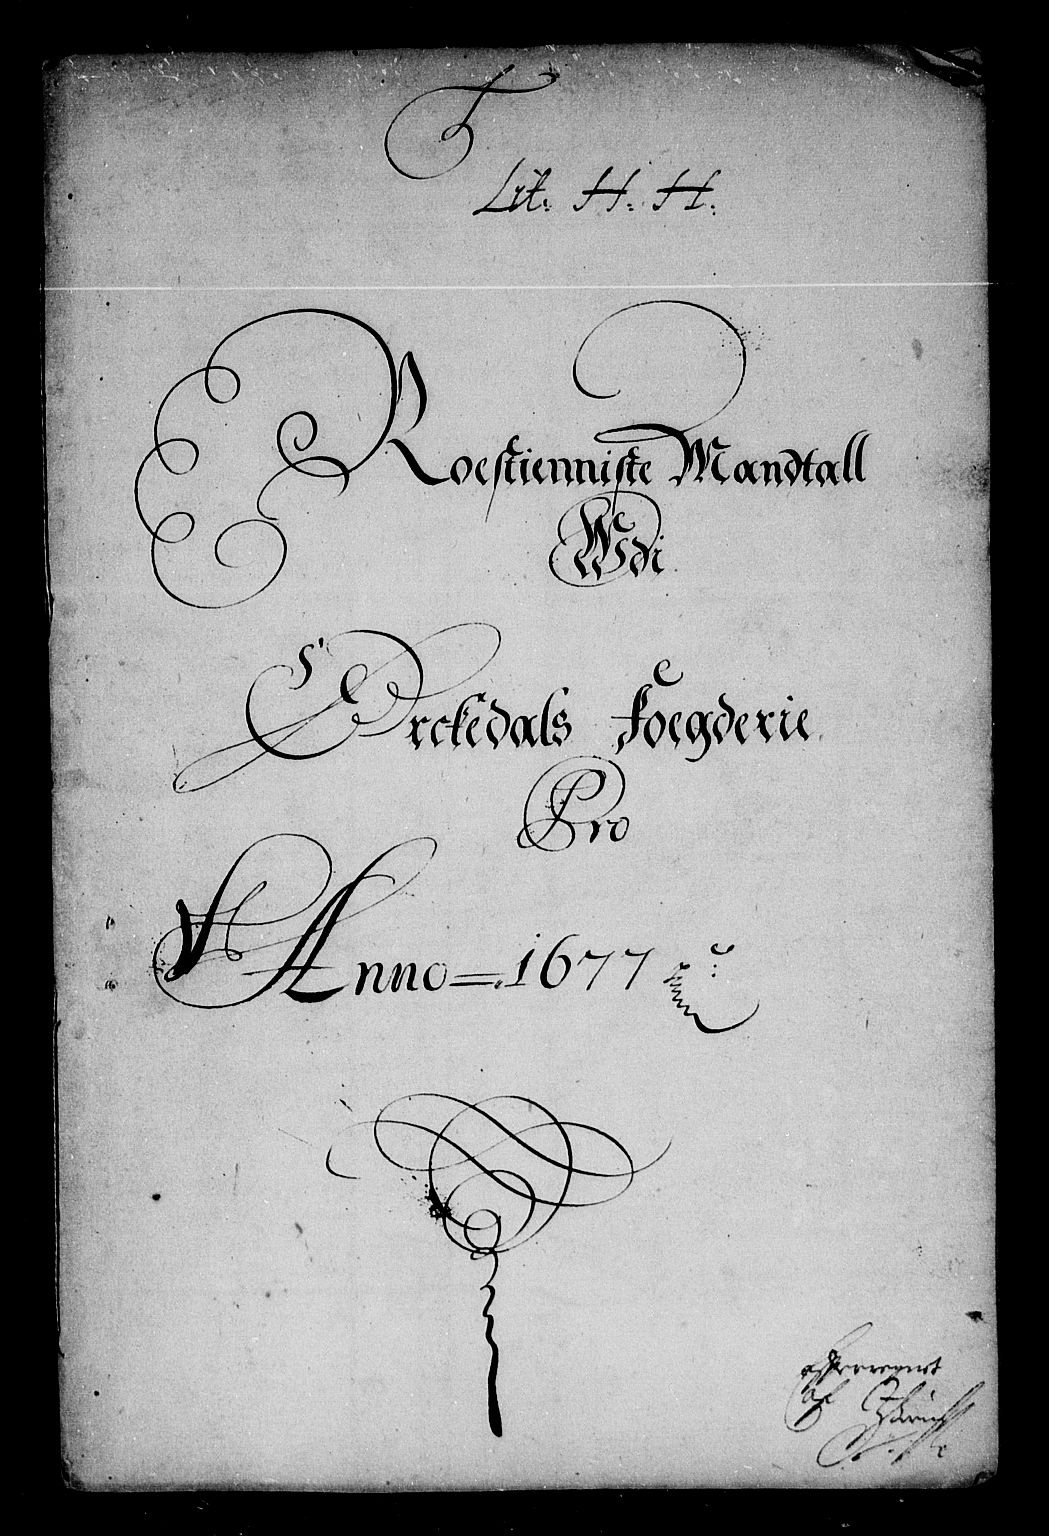 Lit. H. H.
Roestienniste Mandtall
Wdi
Orckedals Foegderie
Pro
Anno 1677
af